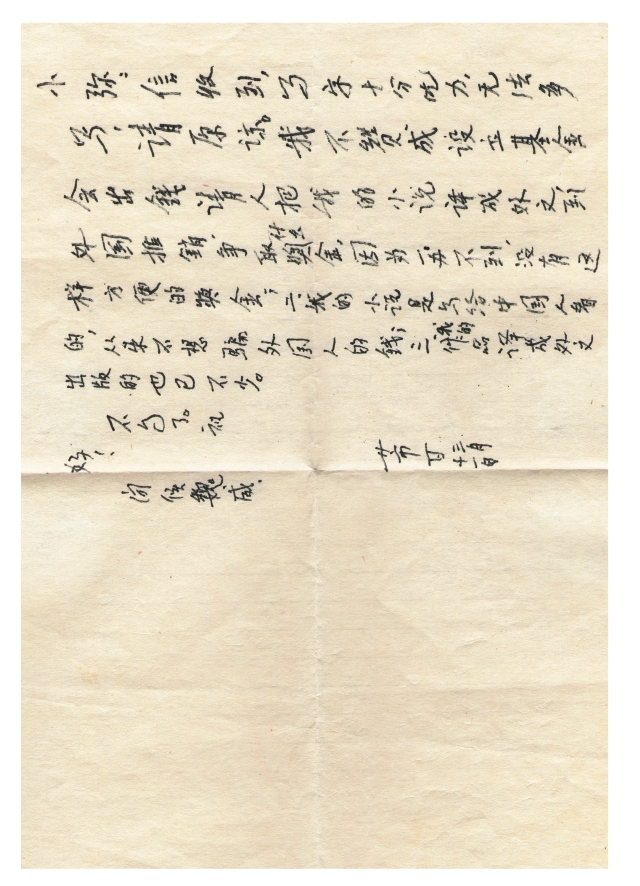 小弥：信收到，写字十分吃力，无法多
写，请原谅。我不赞成设立基金
会出钱请人把我的小说译成外文，到
外国推销，争取什么奖金，因为一、办不到，没有这
样方便的奖金；二、我的小说是写给中国人看
的，从来不想骗外国人的钱；三、我的作品译成外文
出版的也已不少。
不写了。祝
好！
芾甘 三月十一日
问候魏成